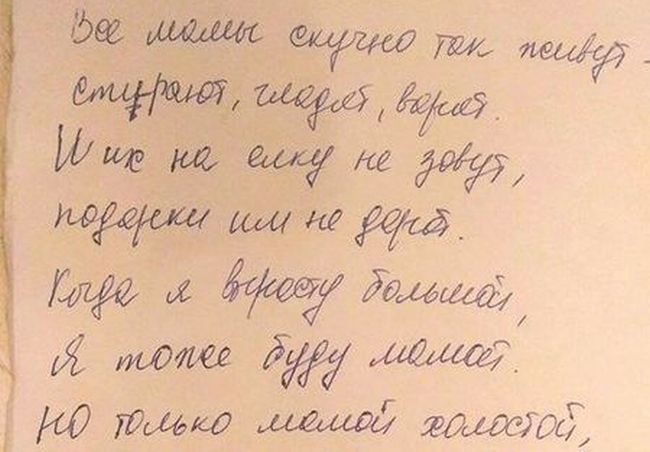 Все мамы скучно так живут -
стирают, гладят, варят.
И их на елку не зовут,
подарки им не дарят.
Когда я вырасту большой,
Я тоже буду мамой.
НО только мамой холостой,